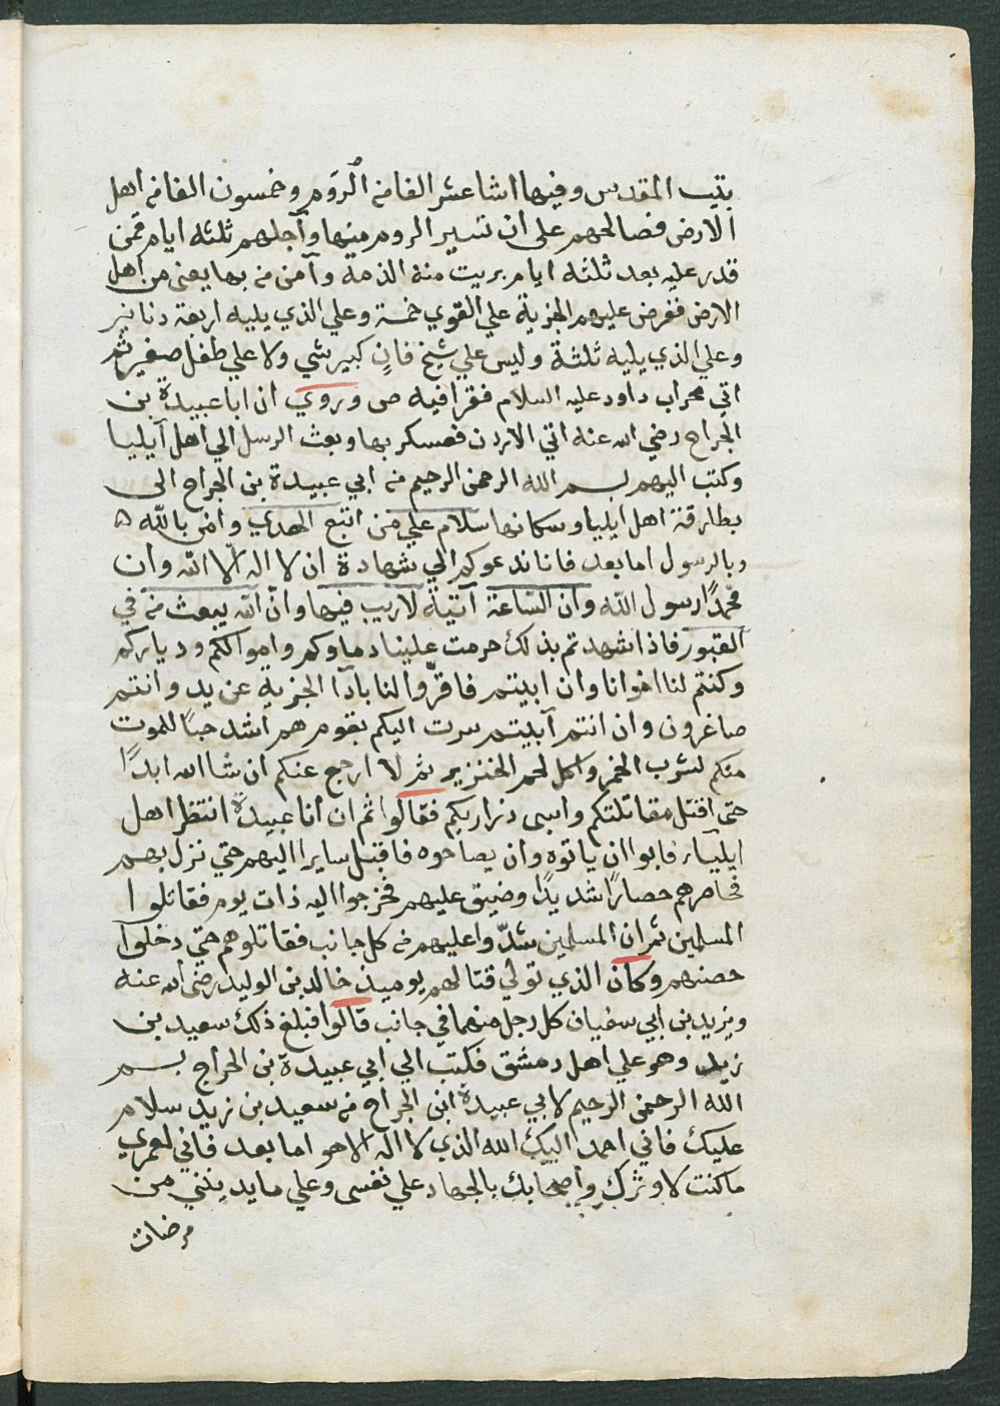 بتيب المقدس وفيها اثنا عشر الفا من الروم وخمسون الفا من اهل
الارض فصالحهم على ان تسير الروم منها وآجلهم ثلثه ايام فمن
قدر عليه بعد ثلثه ايام بريت منه الذمة وآمن من بها يعنى من اهل
الارض ففرض عليهم الجزية علي القوي خمسة وعلي الذي يليه اربعة دنانير
وعلي الذي يليه ثلثة وليس علي شيخ فانٍ كبير شي ولا علي طفل صغير ثم
اتي محراب داود عليه السلام فقرا فيه ص وروي ان ابا عبيدة بن
الجراح رضي الله عنه اتي الاردن فعسكر بها وبعث الرسل الي اهل آيليا
وكتب اليهم بسم الله الرحمن الرحيم من ابي عبيدة بن الجراح الى
بطارقة اهل ايليا وسكانها سلام علي من اتبع الهدي وامن بالله ه
وبالرسول اما بعد فانا ندعوكم الي شهادة ان لا اله الّا الله وان
محمدًا رسول الله وان السّاعة آتية لا ريب فيها وانّ الله يبعث من في
القبور فاذا شهدتم بذلك حرمت علينا دماوكم واموالكم ودياركم
وكنتم لنا اخوانا وان ابيتم فاقرّوا لنا بادآ الجزية عن يد وانتم
صاغرون وان انتم آبيتم سرت اليكم بقوم هم اشد حبًا للموت
منكم لشرب الخمر واكل لحم الخنزير ثم لا ارجع عنكم ان شا الله ابدًا
حتى اقتل مقاتلتكم واسبى ذراريكم فقالوا ثم ان ابا عبيدة انتظر اهل
ايلياء فابوا ان ياتوه وان يصالحوه فاقبل سايرا اليهم حتي نزل بهم
فحاصرهم حصارًا شديدًا وضيق عليهم فخرجوا اليه ذات يوم فقاتلوا
المسلمين ثم ان المسلمين شدّوا عليهم من كل جانب فقاتلوهم حتي دخلوا
حصنهم وكان الذي تولي قتالهم يوميذ خالد بن الوليد رضى الله عنه
ويزيد بن ابي سفيان كل رجل منهما في جانب قالوا فبلغ ذلك سعيد بن
زيد وهو علي اهل دمشق فكتب الي ابي عبيدة بن الجراح بسم
الله الرحمن الرحيم لابي عبيدة ابن الجراح من سعيد بن زيد سلام
عليك فاني احمد اليك الله الذي لا اله الا هو اما بعد فاني لعمري
ما كنت لاوثرك واصحابك بالجهاد علي نفسى وعلي ما يدينني من
مرضات